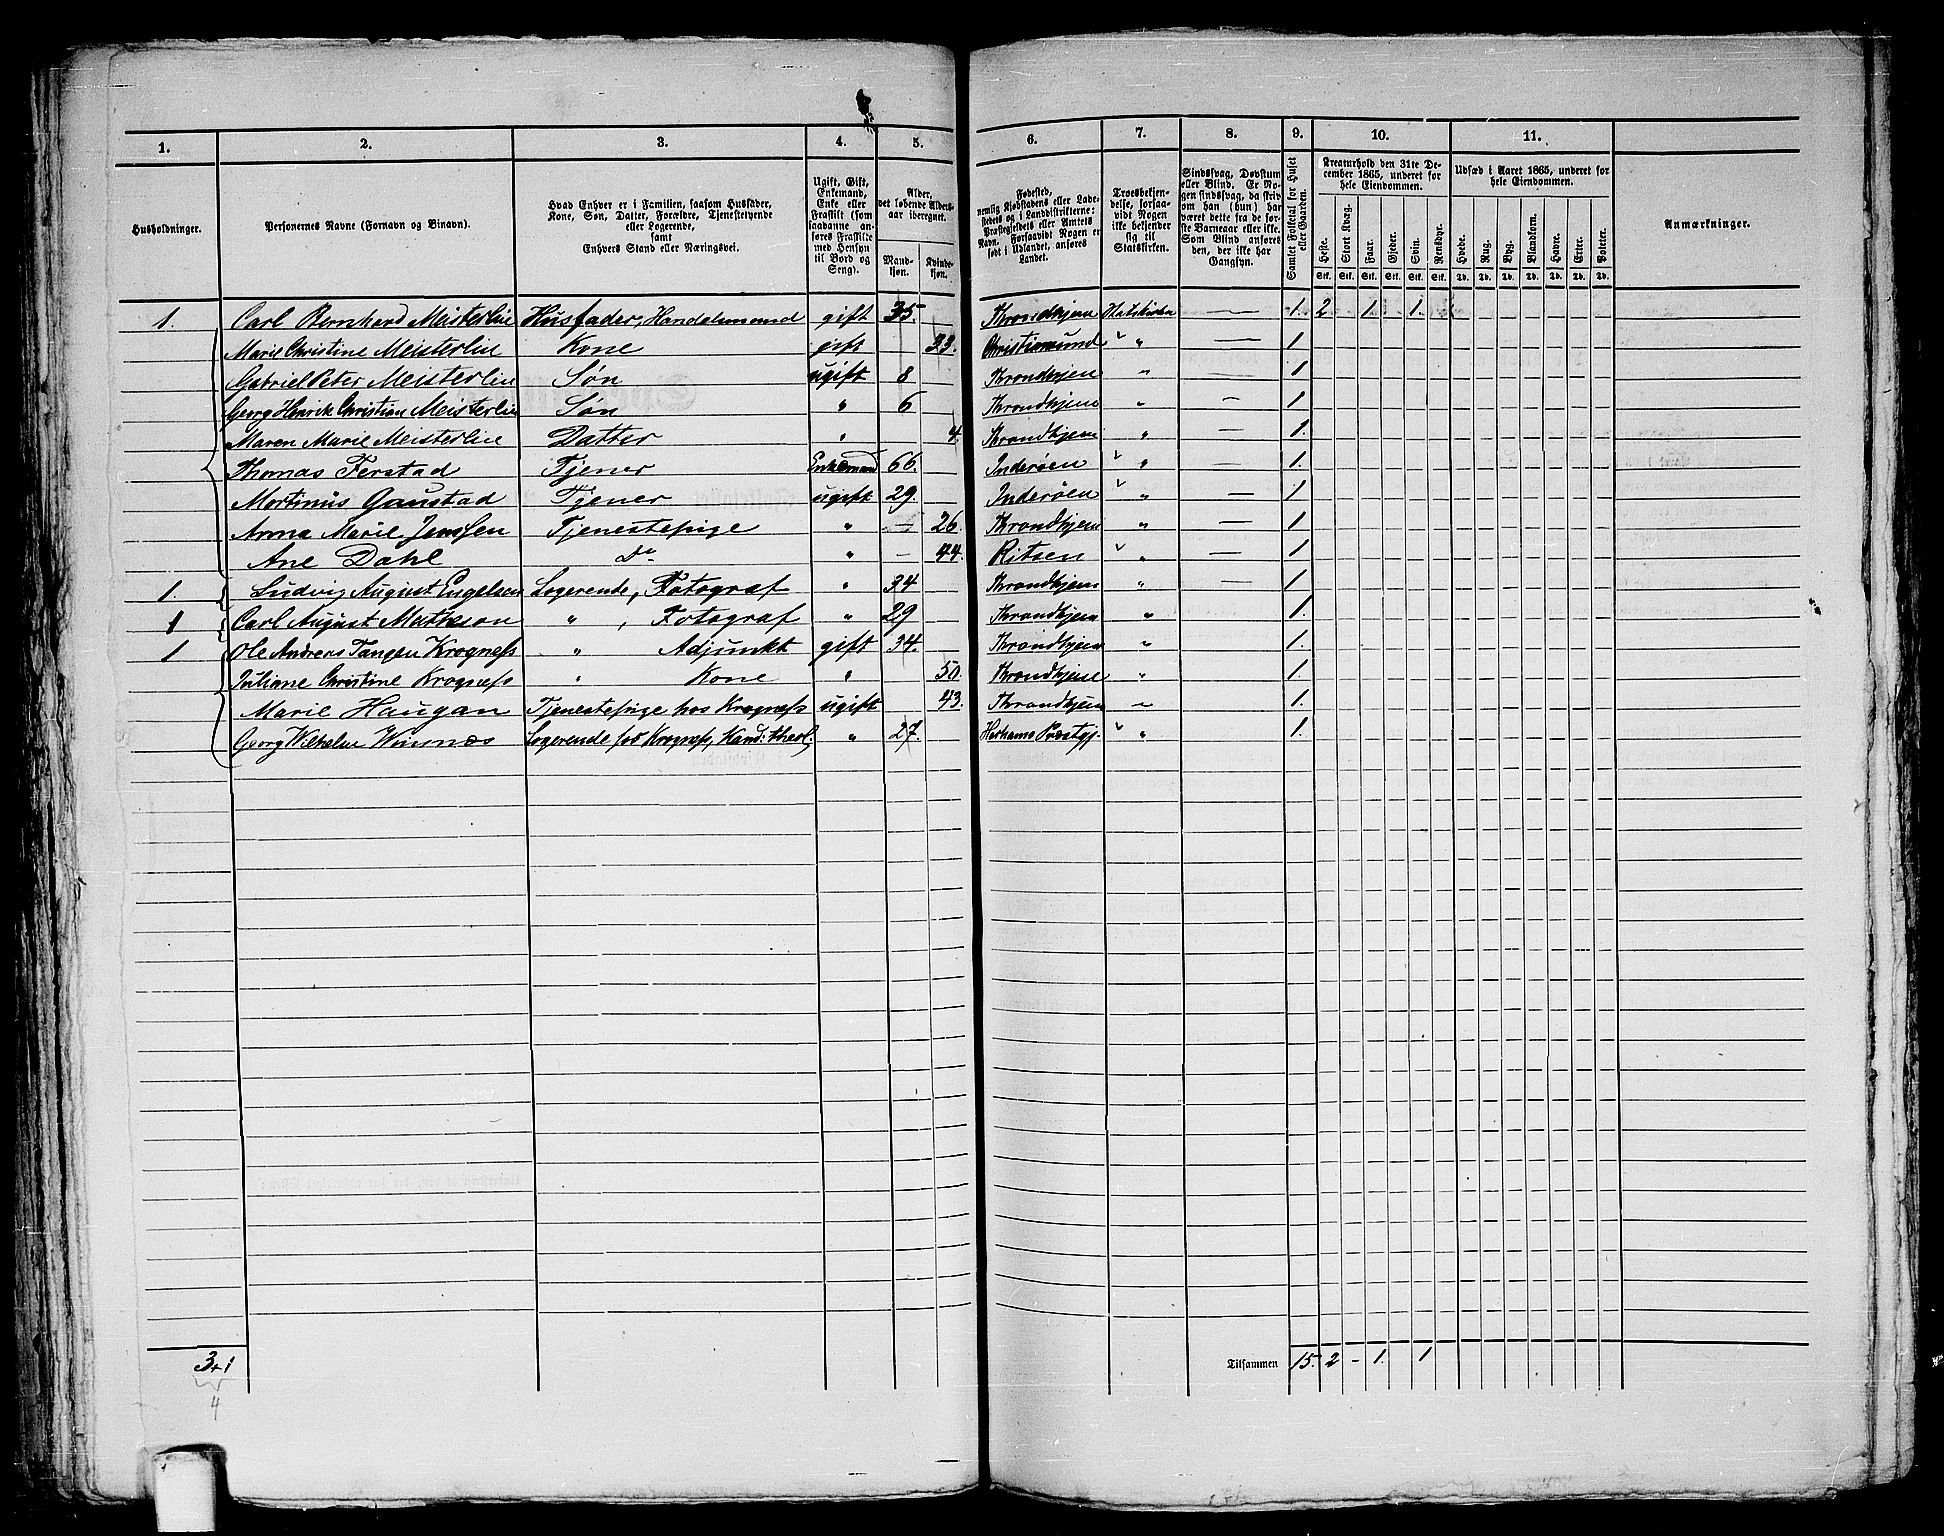 1. 2. 3. 4. 5. 6. 7. 8. 9. 10. 11.
Husholdninger.
Personernes Navne (Fornavn og Binavn).
Hvad Enhver er i Familien, saasom Husfader, Kone, Søn, Datter, Forældre, Tjenestetyende eller Logerende, samt Enhvers Stand eller Næringsvei.
Ugift, Gift, Enkemand, Enke eller Fraskilt (som saadanne anføres Fraskilte med Hensyn til Bord og Seng).
Alder, det løbende Aldersaar iberegnet.
Mandkjøn. Kvindekjøn.
Fødested, nemlig Kjøbstadens eller Ladestedets og i Landdistrikterne: Præstegjeldets eller Amtets Navn. Forsaavidt Nogen er født i Udlandet, anføres Landet.
Troesbekjendelse, forsaavidt Nogen ikke bekjender sig til Statskirken.
Sindssvag, Døvstum eller Blind. Er Nogen sindssvag, da skrives om han (hun) har været dette fra de første Barneaar eller ikke. Som Blind anføres den, der ikke har Gangsyn.
Samlet Folketal for Huset eller Gaarden.
Kreaturhold den 31te December 1865, underet for hele Eiendommen.
Heste. Stort Kvæg. Faar. Gjeder. Svin. Rensdyr.
Stk. Stk. Stk. Stk. Stk. Stk.
Udsæd i Aaret 1865, underet for hele Eiendommen.
Hvede. Rug. Byg. Blandkorn. Havre. Erter. Poteter.
Td. Td. Td. Td. Td. Td. Td.
Anmærkninger.
1. Carl Bernhard Meisterlin Husfader, Handelsmand gift 35. Throndhjem Statskirke — 1. 2 1. 1.
Marie Christine Meisterlin Kone gift 33. Christiansund " — 1.
Gabriel Peter Meisterlin Søn ugift 8 Throndhjem " — 1
Georg Henrik Christian Meisterlin Søn " 6 Throndhjem " — 1.
Maren Marie Meisterlin Datter " 4. Throndhjem " — 1.
Thomas Ferstad Tjener Enkemand 66. Inderøen " — 1.
Mortinus Gaustad Tjener ugift 29. Inderøen " — 1
Anna Marie Jenssen Tjenestepige " — 26. Throndhjem " — 1
Ane Dahl Do " — 44. Ritsen " — 1
1. Ludvig August Engelsen Logerende, Fotograf " 34 Throndhjem " — 1
1 Carl August Matheson " , Fotograf " 29 Throndhjem " 1.
1 Ole Andreas Tangen Krogness " Adjunkt gift 34. Throndhjem " 1.
Juliane Christine Krogness " Kone " 50. Throndhjem " 1.
Marie Haugan Tjenestepige hos Krogness ugift 43. Throndhjem " 1.
Georg Wilhelm Logerende hos Krogness, Kand: theol. " 27. Præstgj. " 1.
3+1 Tilsammen 15. 2 - 1. 1
4